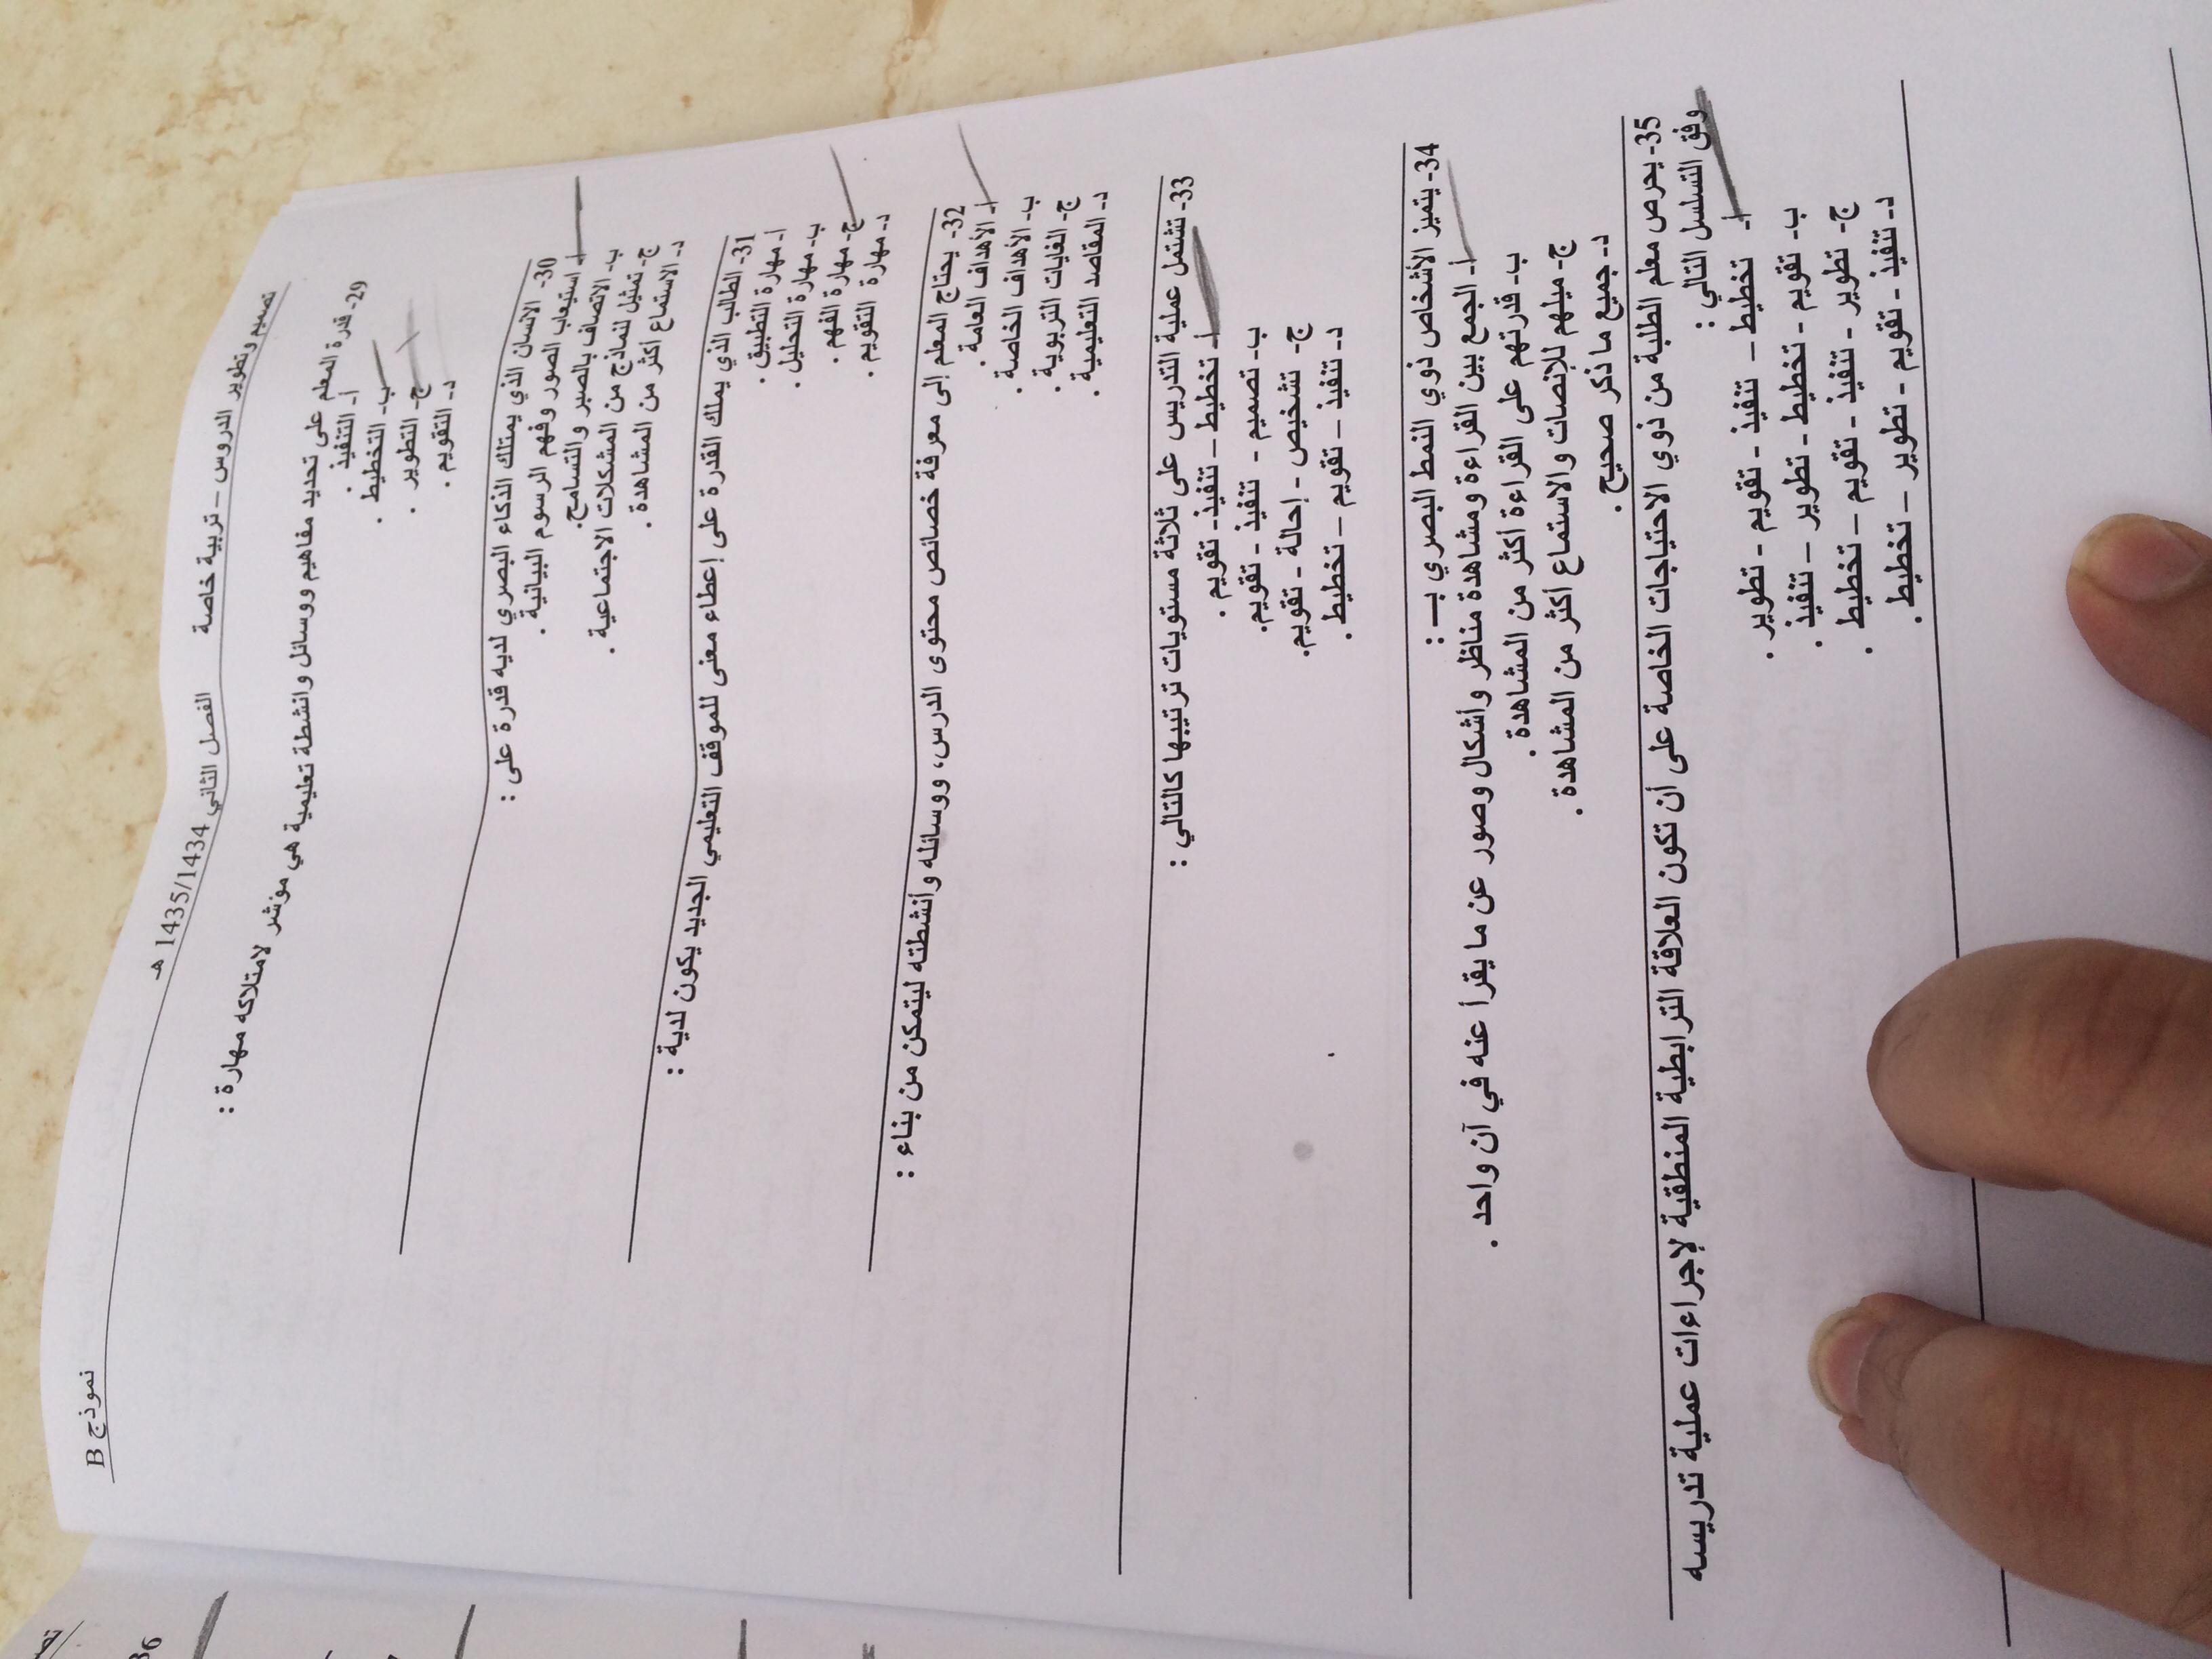 تصميم وتطوير الدروس – تربية خاصة الفصل الثاني 1435/1434 هـ نموذج B
29- قدرة المعلم على تحديد مفاهيم ووسائل وانشطة تعليمية هي مؤشر لامتلاكه مهارة :
أ- التنفيذ .
ب- التخطيط .
ج- التطوير .
د- التقويم .
30- الانسان الذي يمتلك الذكاء البصري لديه قدرة على :
أ- استيعاب الصور وفهم الرسوم البيانية .
ب- الاتصاف بالصبر والتسامح.
ج- تمثيل لنماذج من المشكلات الاجتماعية .
د- الاستماع أكثر من المشاهدة .
31- الطالب الذي يملك القدرة على إعطاء معنى للموقف التعليمي الجديد يكون لدية :
أ- مهارة التطبيق .
ب- مهارة التحليل .
ج- مهارة الفهم .
د- مهارة التقويم .
32- يحتاج المعلم إلى معرفة خصائص محتوى الدرس، ووسائله وأنشطته ليتمكن من بناء :
أ- الأهداف العامة .
ب- الأهداف الخاصة .
ج- الغايات التربوية .
د- المقاصد التعليمية .
33- تشتمل عملية التدريس على ثلاثة مستويات ترتيبها كالتالي :
أ- تخطيط – تنفيذ- تقويم .
ب- تصميم - تنفيذ - تقويم.
ج- تشخيص - إحالة - تقويم.
د- تنفيذ – تقويم – تخطيط .
34- يتميز الأشخاص ذوي النمط البصري بـ :
أ- الجمع بين القراءة ومشاهدة مناظر وأشكال وصور عن ما يقرأ عنه في آن واحد .
ب- قدرتهم على القراءة أكثر من المشاهدة .
ج- ميلهم للإنصات والاستماع أكثر من المشاهدة .
د- جميع ما ذكر صحيح .
35- يحرص معلم الطلبة من ذوي الاحتياجات الخاصة على أن تكون العلاقة الترابطية المنطقية لإجراءات عملية تدريسه
وفق التسلسل التالي :
أ- تخطيط – تنفيذ - تقويم - تطوير .
ب- تقويم - تخطيط - تطوير – تنفيذ .
ج- تطوير - تنفيذ - تقويم – تخطيط .
د- تنفيذ - تقويم - تطوير – تخطيط .